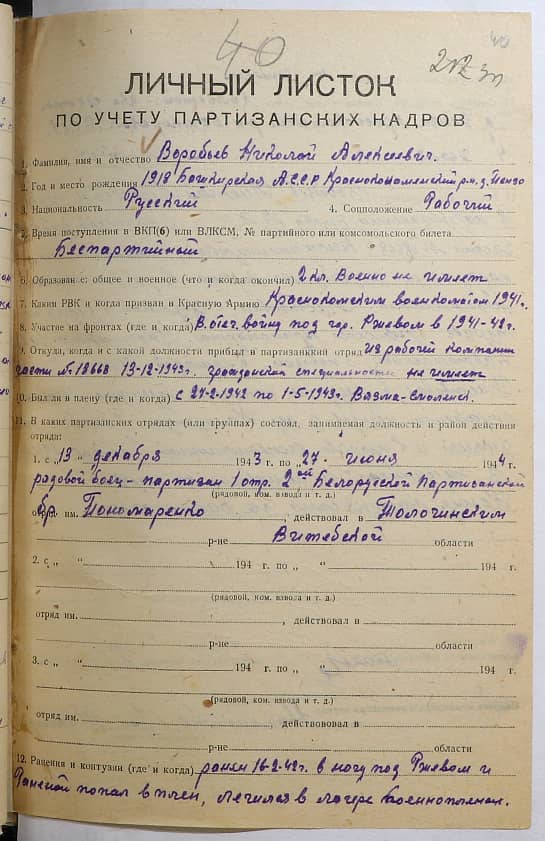 40
40
ЛИЧНЫЙ ЛИСТОК
ПО УЧЕТУ ПАРТИЗАНСКИХ КАДРОВ
1. Фамилия, имя и отчество Воробьев Николай Алексеевич.
2. Год и место рождения 1918 Башкирская А.С.С.Р Краснокамский р-н д.
3. Национальность Русский 4. Соцположение Рабочий
5. Время поступления в ВКП(б) или ВЛКСМ, № партийного или комсомольского билета
Беспартийный
6. Образование: общее и военное (что и когда окончил) 2 кл. Военно не имеет
7. Каким РВК и когда призван в Красную Армию Краснокамским военкоматом 1941г.
8. Участие на фронтах (где и когда) В. отеч. войну под гор. Ржевом в 1941-42г.
9. Откуда, когда и с какой должности прибыл в партизанский отряд из рабочей компании
части № 18668 13-12-1943г. гражданской специальности не имеет
10. Был ли в плену (где и когда) с 24-2-1942 по 1-5-1943г. Вязма-Смоленск.
11. В каких партизанских отрядах (или группах) состоял, занимаемая должность и район действия
отряда:
1. с „13" декабря 1943 г. по „27" июня 1944 г.
рядовой боец-партизан 1 отр. 2ой Белорусской Партизанской
(рядовой, ком. взвода и т. д.)
отряд им. бр. Пономаренко, действовал в Толочинским
р-не Витебской области
2. с „ " 194 г. по „ " 194 г.
(рядовой, ком. взвода и т. д.)
отряд им. , действовал в
р-не области
3. с „ " 194 г. по „ " 194 г.
(рядовой, ком. взвода и т. д.)
отряд им. , действовал в
р-не области
12. Ранения и контузии (где и когда) ранен 16-2-42г. в ногу под Ржевом и
раненой попал в плен, лечился в лагере военноплен.